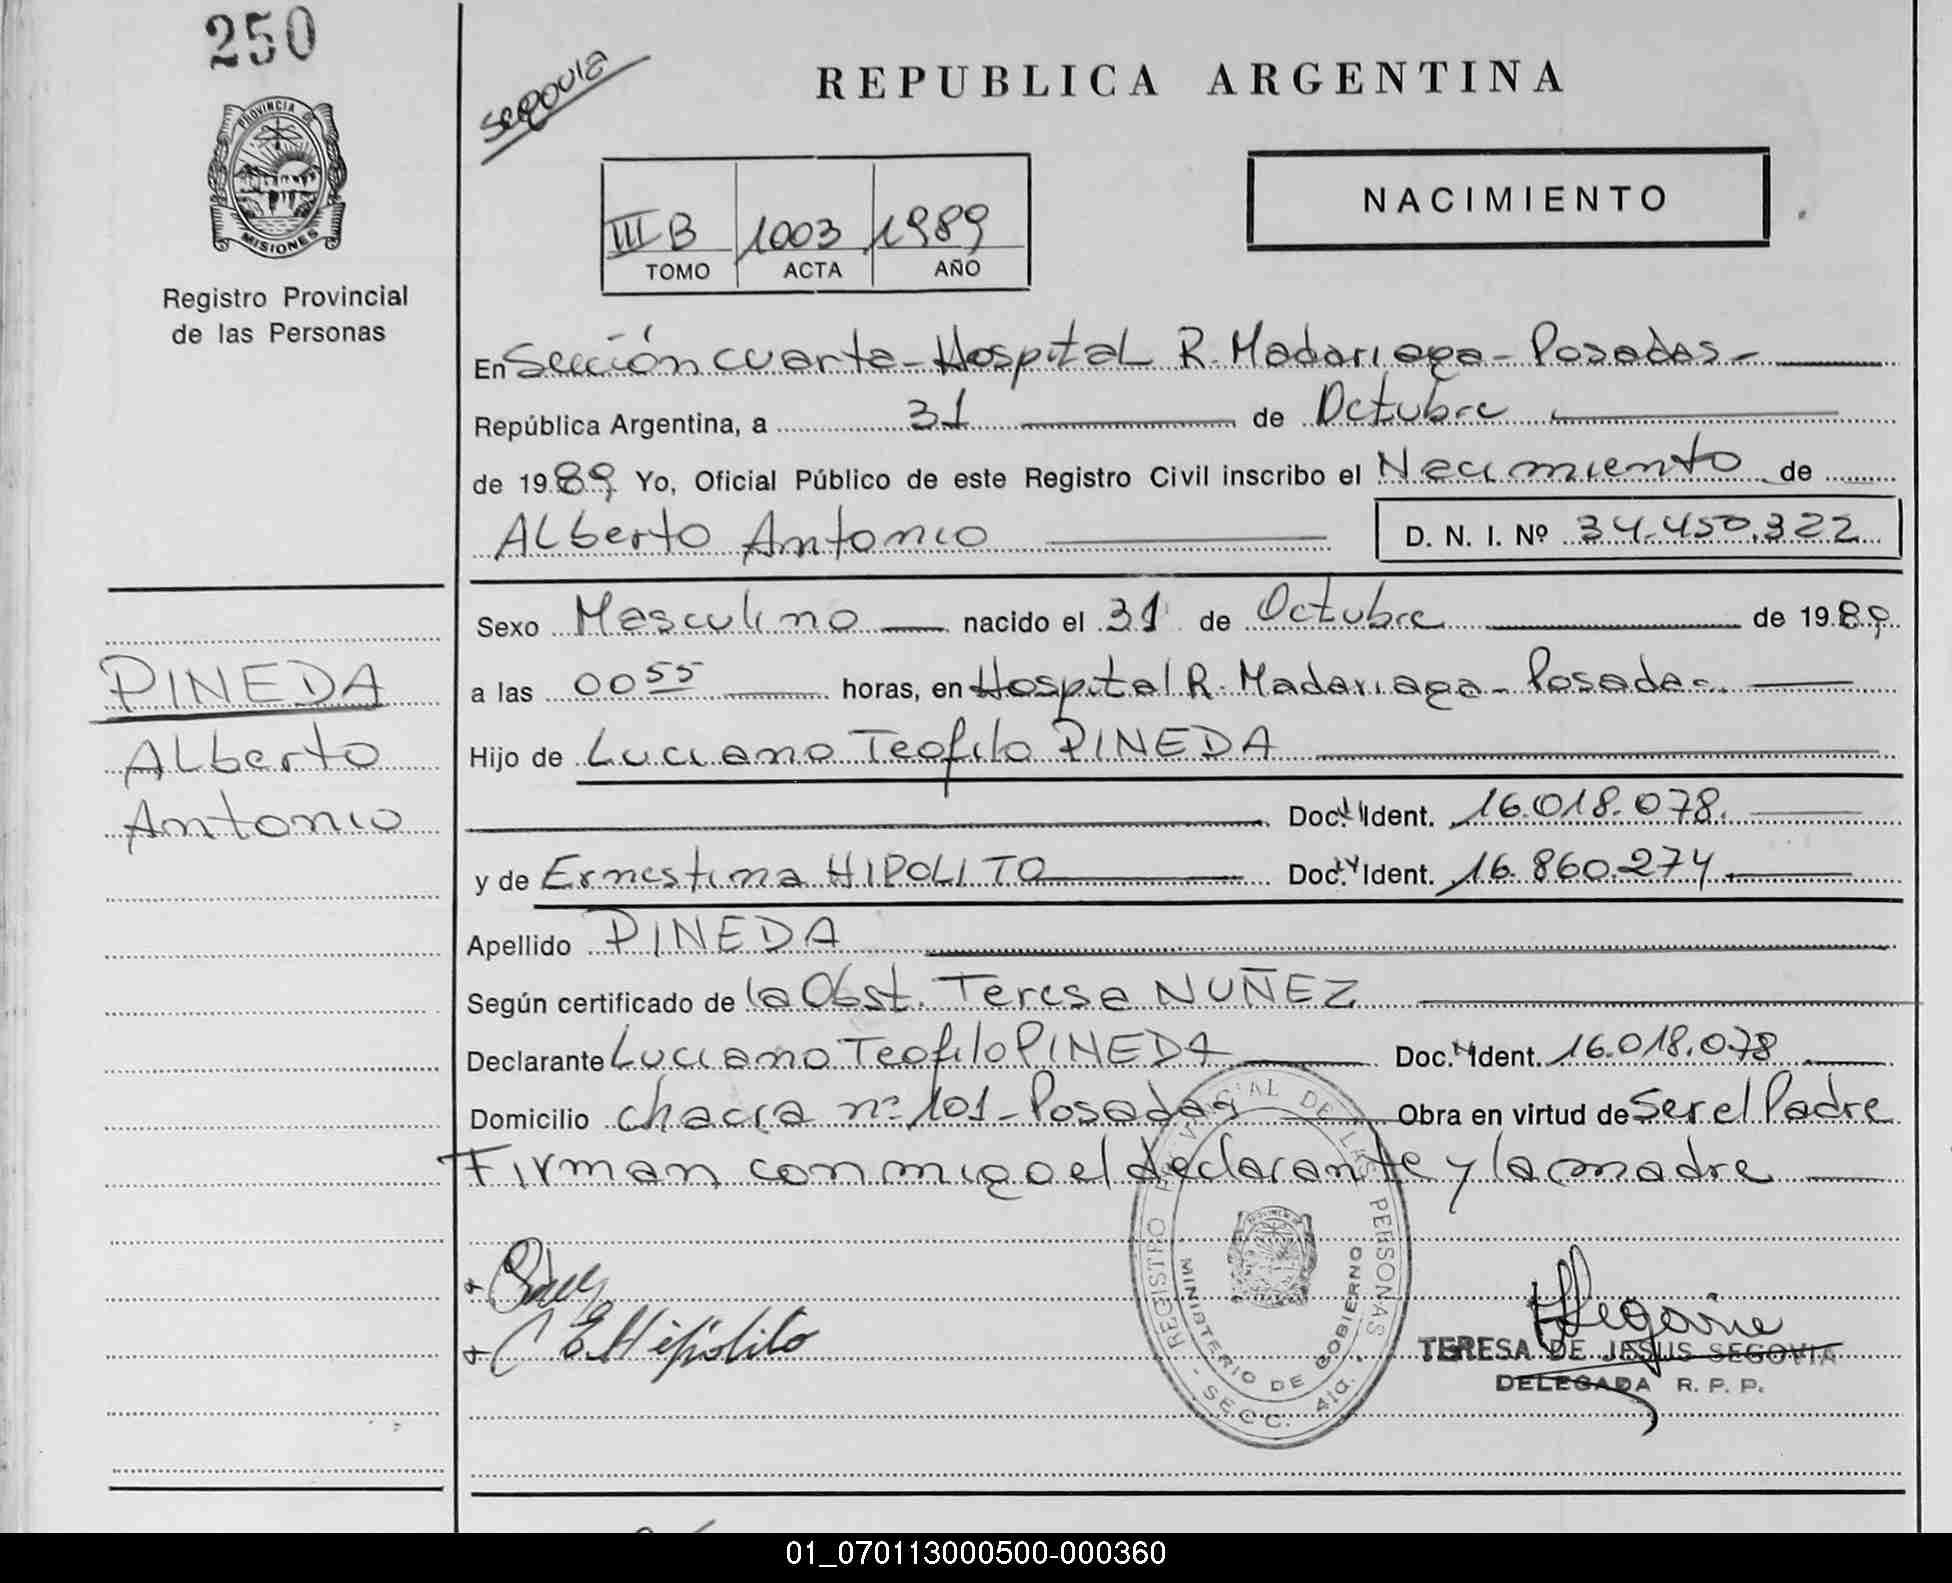 250
segovia
REPUBLICA ARGENTINA
PROVINCIA DE
MISIONES
Registro Provincial
de las Personas
NACIMIENTO
III B 1003 1989
TOMO ACTA AÑO
En Sección cuarta - Hospital R. Madariaga - Posadas -
República Argentina, a 31 de Octubre
de 1989 Yo, Oficial Público de este Registro Civil inscribo el Nacimiento de
Alberto Antonio D. N. I. Nº 34.450.322
Sexo Masculino nacido el 31 de Octubre de 1989
a las 00 55 horas, en Hospital R. Madariaga - Posadas -
Hijo de Luciano Teofilo PINEDA
Doc. Ident. 16.018.078.
y de Ernestina HIPOLITO Doc. Ident. 16.860.274
Apellido PINEDA
Según certificado de la Obst. Teresa NUÑEZ
Declarante Luciano Teofilo PINEDA Doc. Ident. 16.018.078
Domicilio chacra nº 101 - Posadas Obra en virtud de Ser el Padre
Firman conmigo el declarante y la madre
PINEDA
Alberto
Antonio
E. Hipólito
REGISTRO PROVINCIAL DE LAS PERSONAS
MINISTERIO DE GOBIERNO
- SECC. 4ta. -
Segovia
TERESA DE JESUS SEGOVIA
DELEGADA R. P. P.
01_070113000500-000360